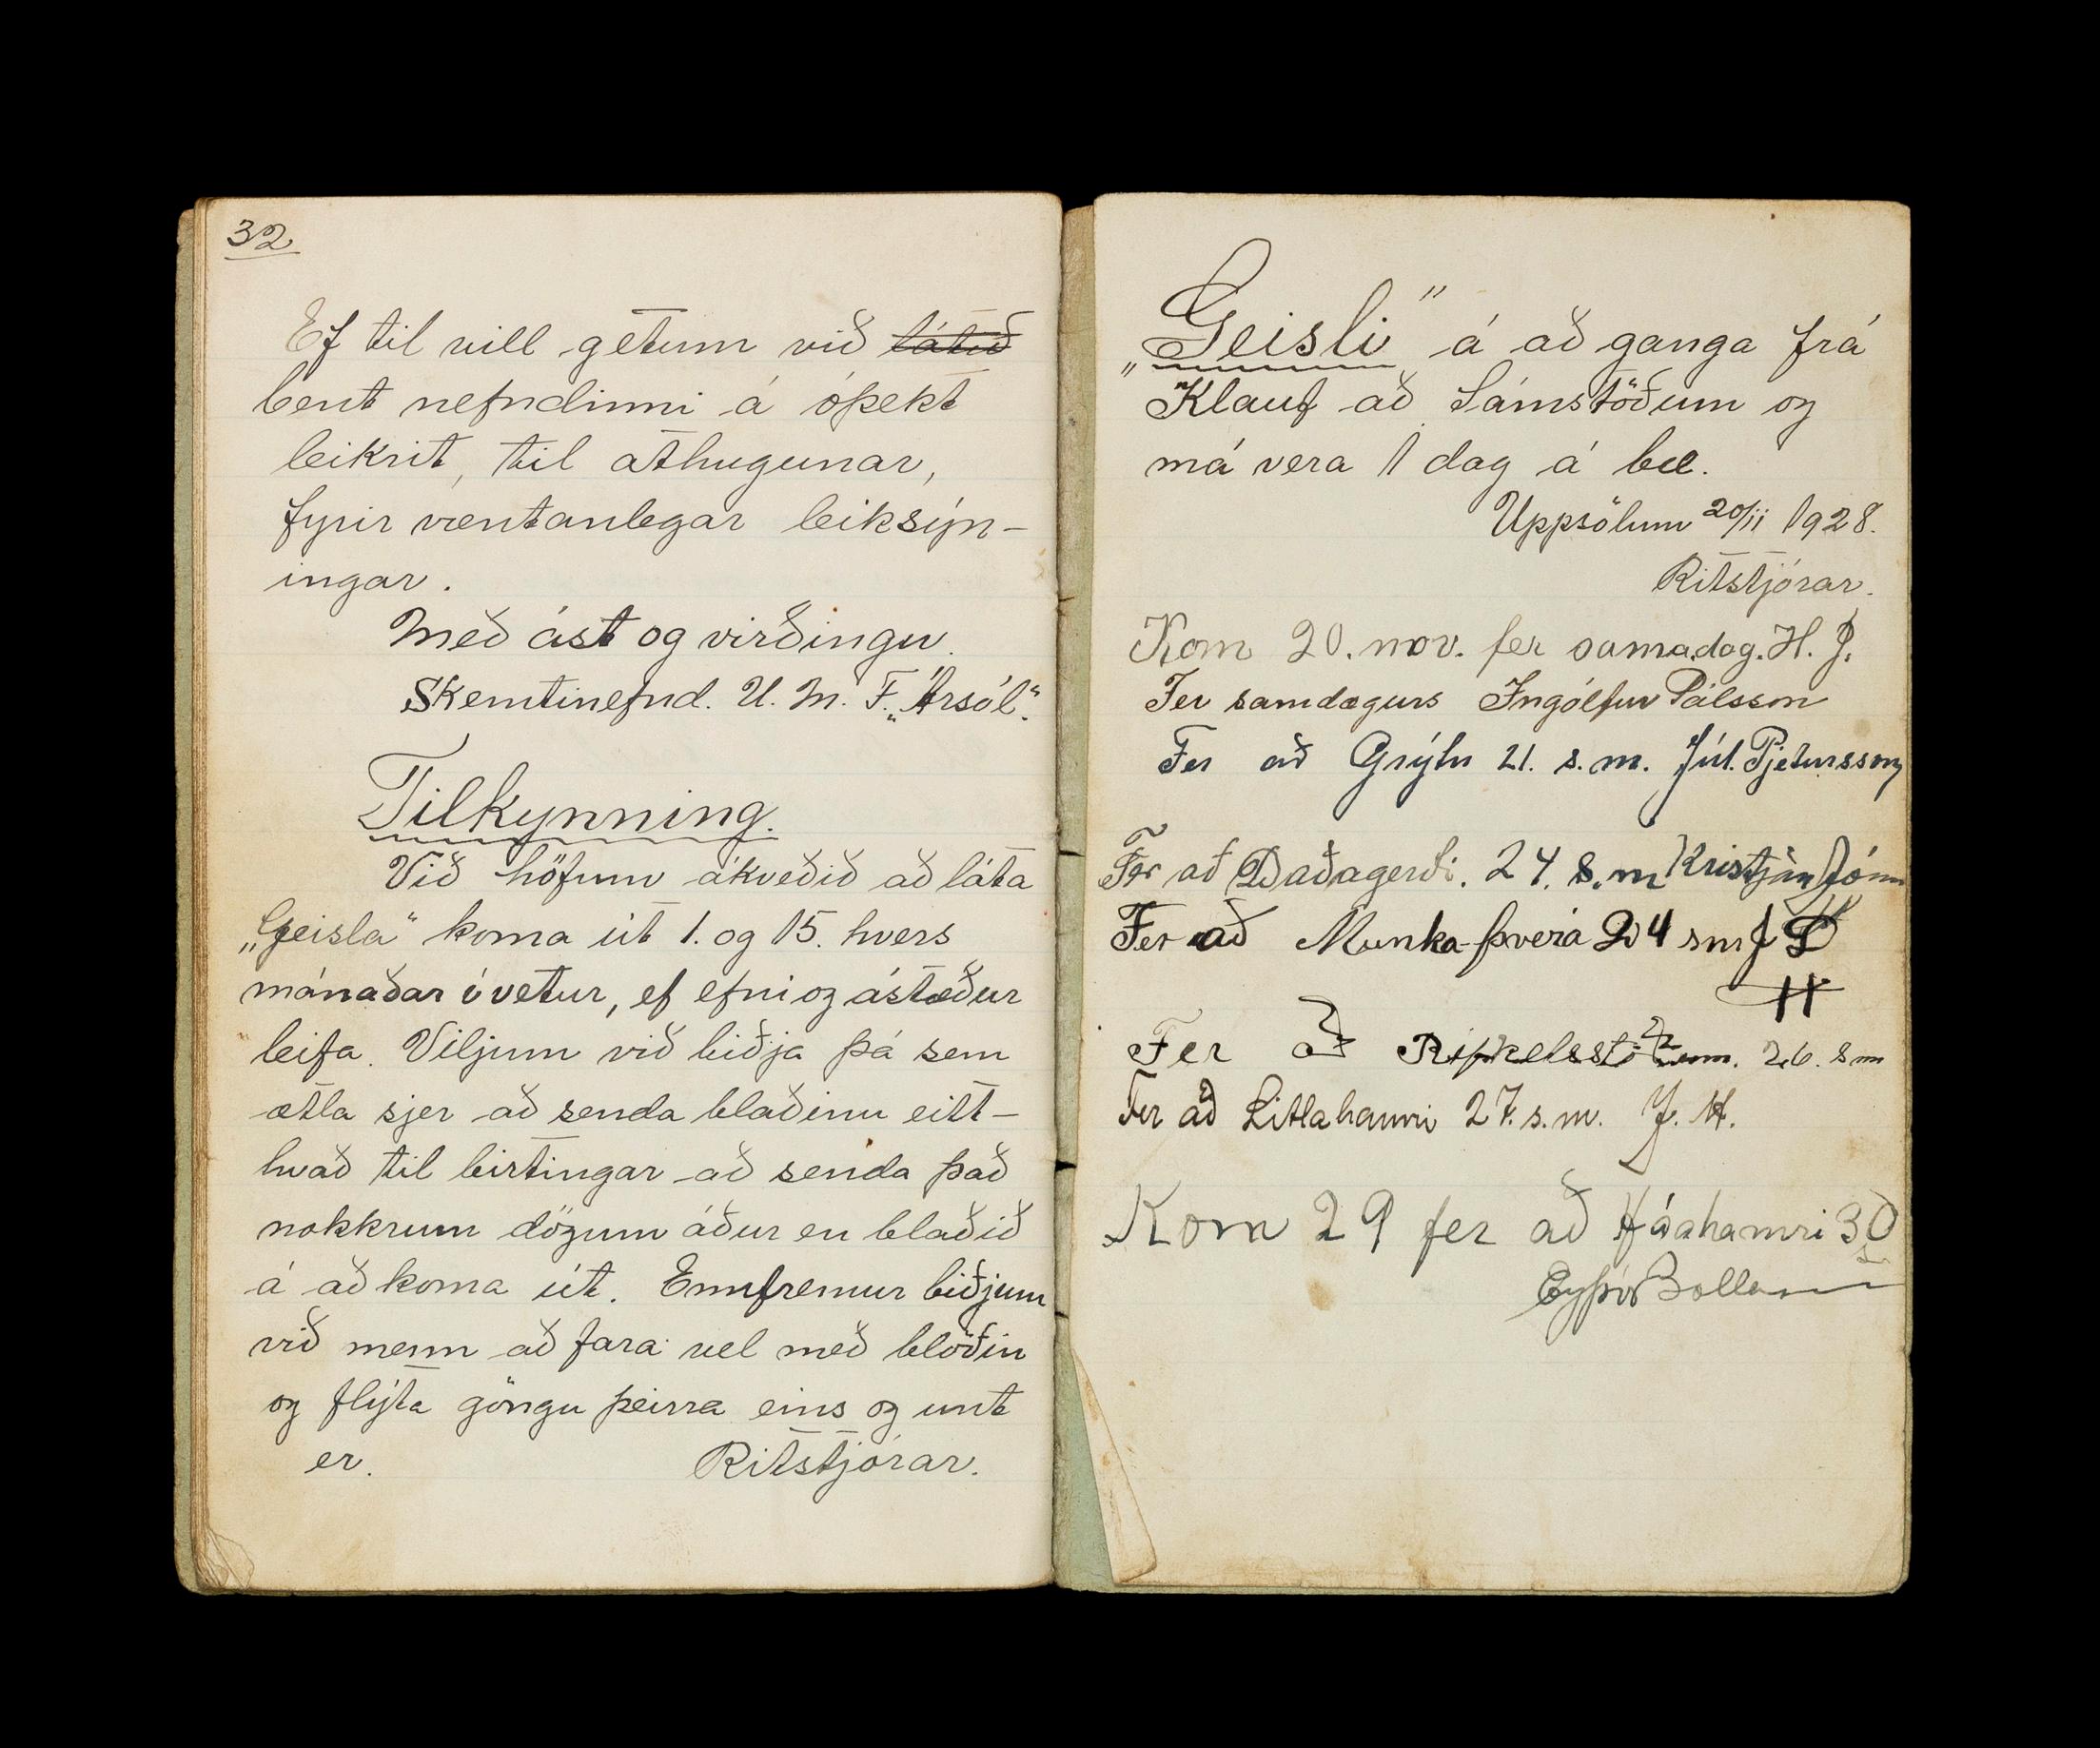 32
Ef til vill getum við látið
bent nefndinni á óþekt
leikrit, til athugunar,
fyrir væntanlegar leiksýn-
ingar.
Með ást og virðingu.
Skemtinefnd. U. M. F. „Ársól“.
Tilkynning.
Við höfum ákveðið að láta
„Geisla“ koma út 1. og 15. hvers
mánaðar í vetur, ef efni og ástæður
leifa. Viljum við biðja þá sem
ætla sjer að senda blaðinu eitt-
hvað til birtingar að senda það
nokkrum dögum áður en blaðið
á að koma út. Ennfremur biðjum
við menn að fara vel með blöðin
og flýta göngu þeirra eins og unt
er. Ritstjórar.
„Geisli“ á að ganga frá
Klauf að Sámstöðum og
má vera 1 dag á bæ.
Uppsölum 20/11 1928.
Ritstjórar.
Kom 20. nov. fer samadag. H. J.
Fer samdægurs Ingólfur Pálsson
Fer að Grýtu 21. s. m. Júl. Pjetursson
Fer að Daðagerði. 24. s. m Kristján Jónss
Fer að Munka-þverá 24 sm J
H
Fer að Rifkelsstöðum. 26. sm
Fer að Litlahamri 27. s. m. J. H.
Kom 29 fer að Háahamri 30
Eyþór